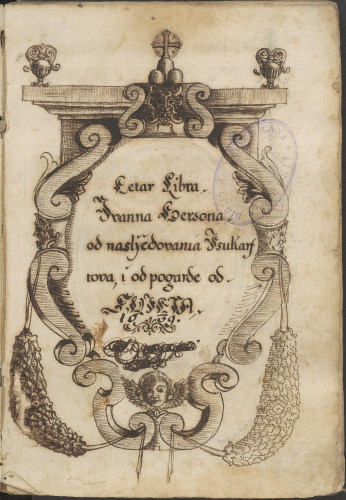 Cetar Libra.
Ivanna Gersona
od naslyedovania Isukars
tova, i od pogarde od.
SVIETA.
1659.